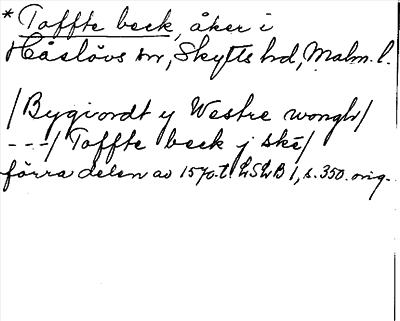 * Toffte beck, åker i
Håslövs sn, Skytts hd, Malm. l.
/Bygivordt y Westre wongh/
---/Toffte beck j skē/
förra delen av 1570-t. LSLB 1, s. 350. orig.